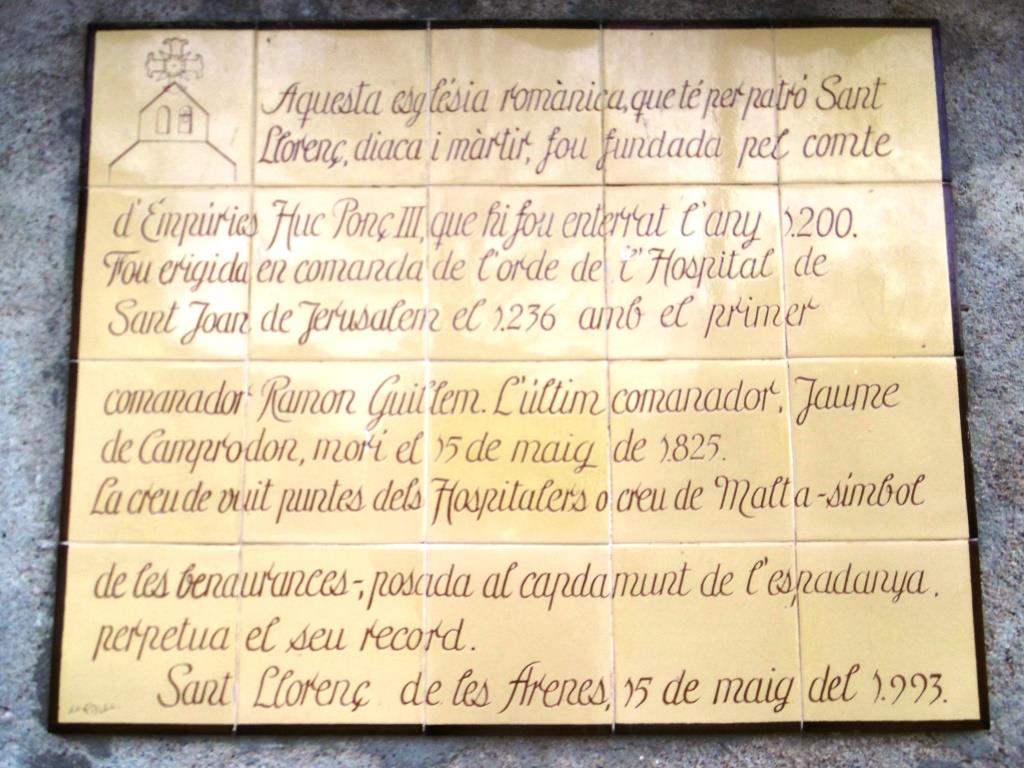 Aquesta església romànica, que té per patró Sant
Llorenç, diaca i màrtir, fou fundada pel comte
d'Empúries Huc Ponç III, que hi fou enterrat l'any 1.200.
Fou erigida en comanda de l'orde de l'Hospital de
Sant Joan de Jerusalem el 1.236 amb el primer
comanador Ramon Guillem. L'últim comanador, Jaume
de Camprodon, morí el 15 de maig de 1.825.
La creu de vuit puntes dels Hospitalers o creu de Malta -símbol
de les benaurances-, posada al capdamunt de l'espadanya,
perpetua el seu record.
Sant Llorenç de les Arenes, 15 de maig del 1.993.